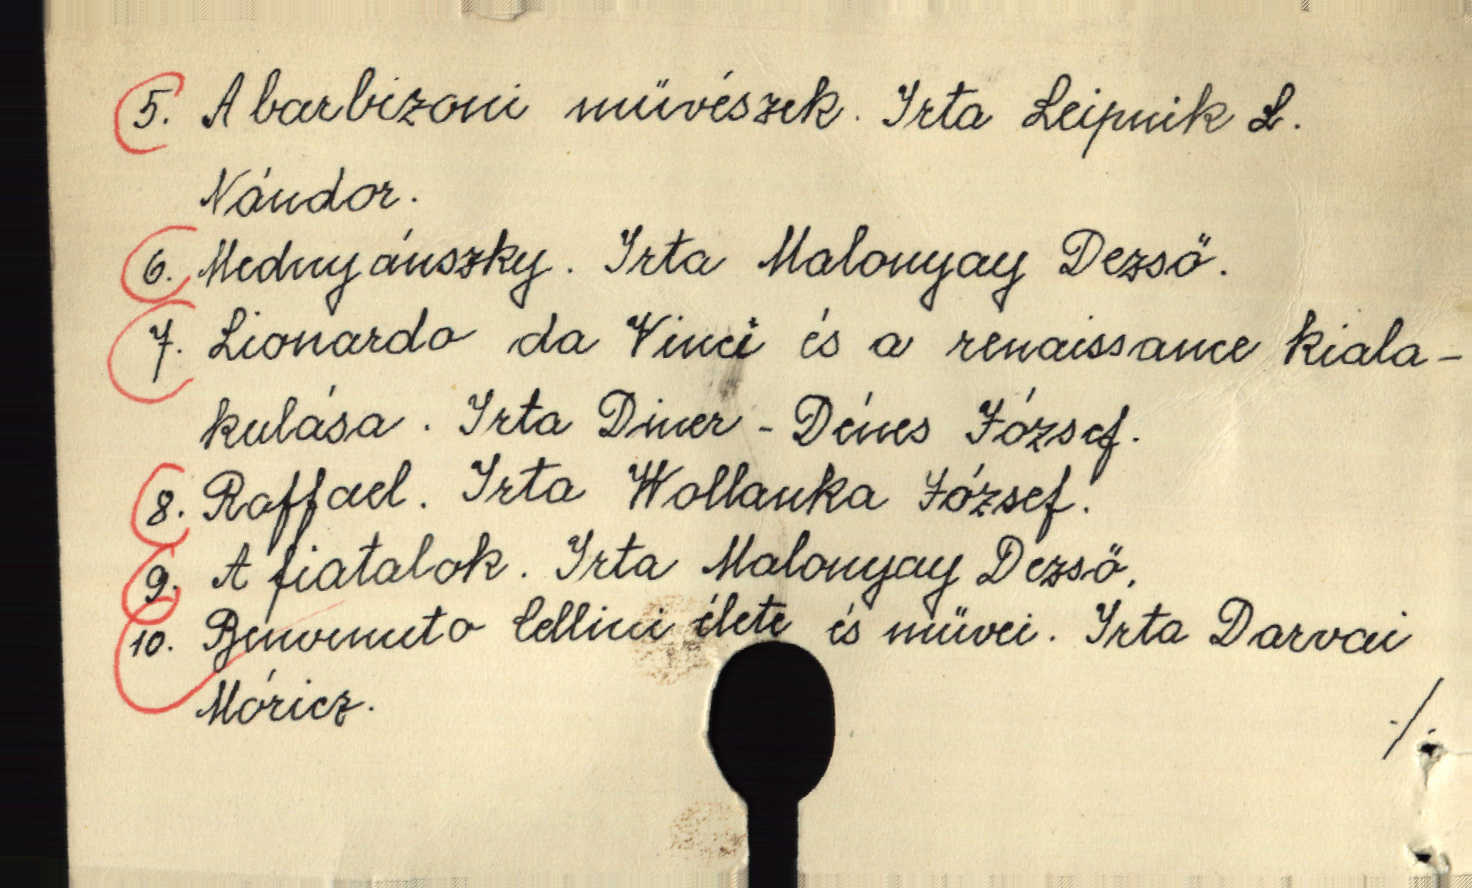 5. A barbizoni müvészek. Irta Leipnik L.
Nándor.
6. Mednyánszky. Irta Malonyay Dezső.
7. Lionardo da Vinci és a renaissance kiala-
kulása. Irta Diner-Dénes József.
8. Raffael. Irta Wollanka József.
9. A fiatalok. Irta Malonyay Dezső.
10. Benvenuto Cellini élete és müvei. Irta Darvai
Móricz.
./.